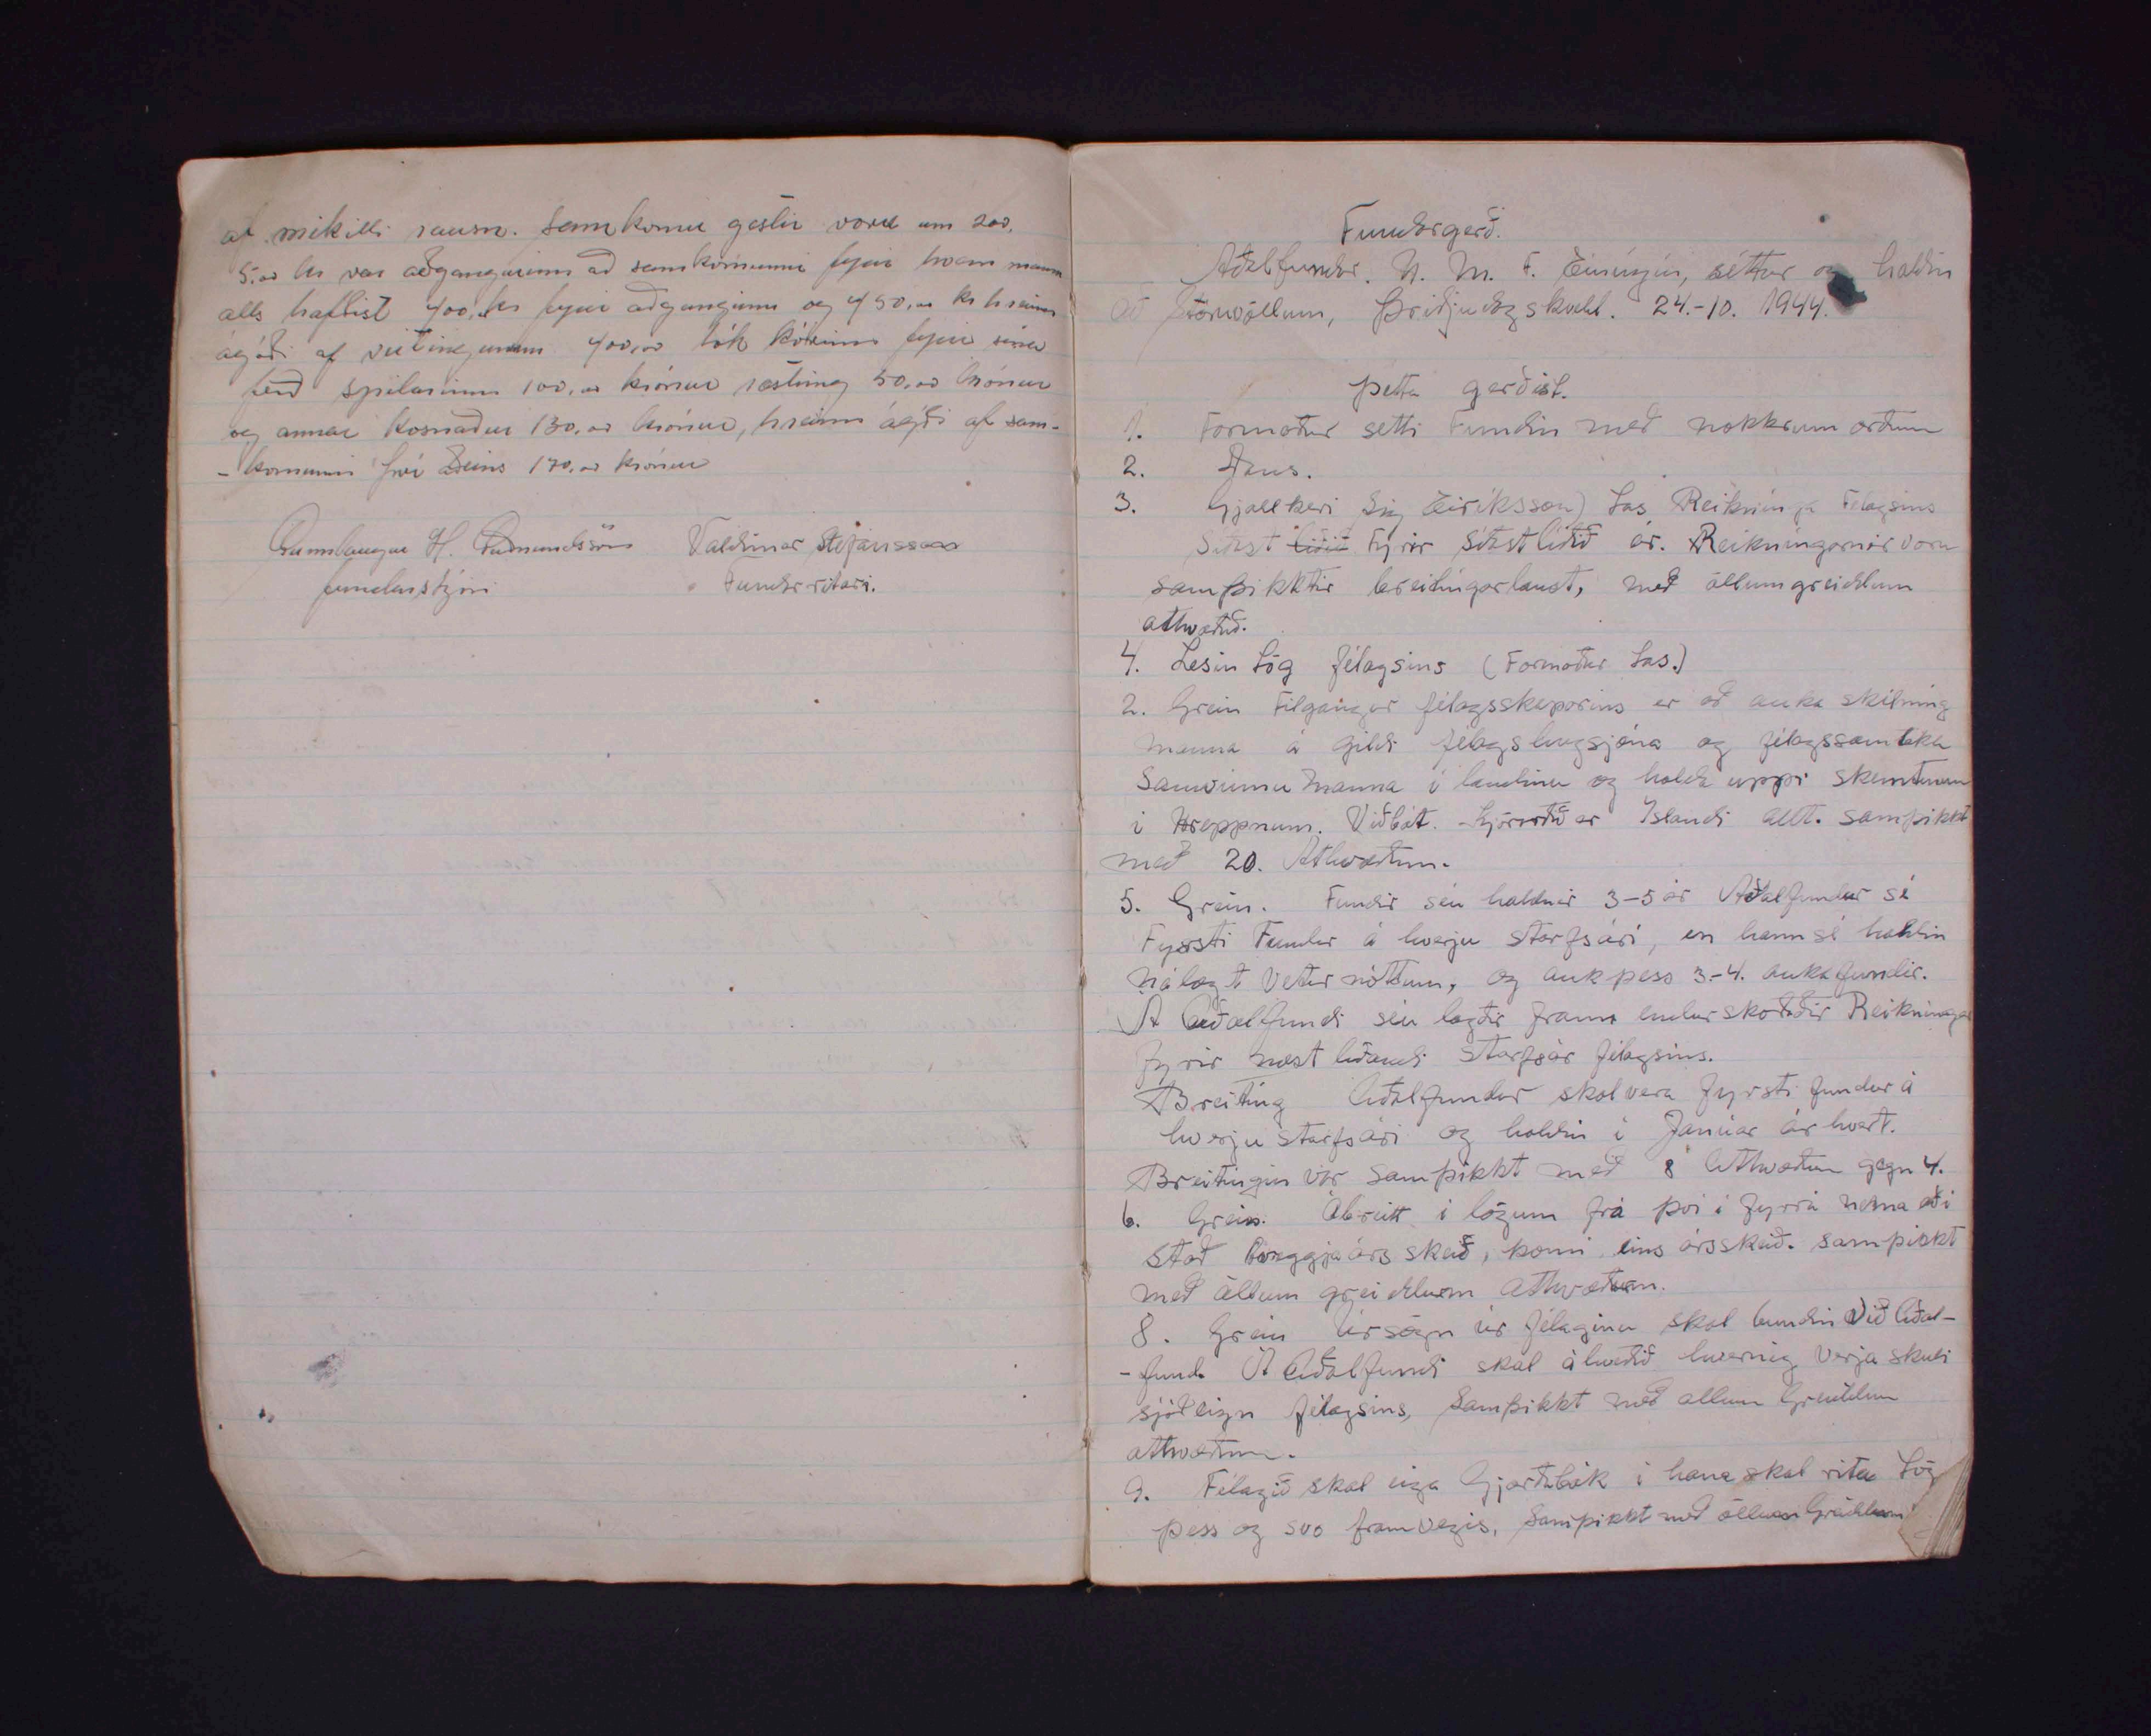 af mikilli rausn. Samkomu gestir voru um 200.
5,00 kr var aðgangurinn að samkomunni fyrir hvern mann
alls hafðist 400, kr fyrir aðganginn og 450,00 kr hreinn
ágóði af veitingunum 400,00 tók kórinn fyrir sína
ferð spilarinn 100,00 krónur ræsting 50,00 krónur
og annar kosnaður 130,00 krónur, hreinn ágóði af sam-
-komunni því aðeins 170,00 krónur
Gunnlaugur H. Guðmundsson Valdimar Stefánsson
fundarstjóri Fundar ritari.
Fundargerð.
Aðalfundur. U. M. F. Einíngin, séttur og haldin
að Stóruvöllum, Þriðjudagskvöld. 24.-10. 1944.
Þetta gerðist.
1. Formaður setti Fundin með nokkrum orðum
2. Dans.
3. Gjaldkeri Sig Eiríksson) Las Reikninga Félagsins
Síðast liðið Fyrir Síðastliðið ár. Reikningarnir voru
samþikktir breitíngarlaust, með öllumgreiddum
athvæðð.
4. Lesin Lög félagsins (Formaður Las.)
2. Grein Tilgangur félagsskaparins er að auka skilning
manna á gildi félagshugsjóna og félagssamtaka
Samvinnu manna í landinu og halda uppi skemtunum
í Hreppnum. Viðbót. Kjörorðið er Íslandi allt. samþikkt
með 20. Athvæðum.
5. Grein. Fundir séu haldnir 3-5 ár Aðalfundur sé
Fyrsti Fundur á hverju starfsári, en hann sé haldin
nálægt Veturnóttum, og auk þess 3-4. aukafundir.
Á Aðalfundi séu lagðir fram endurskoðaðir Reikningar
fyrir næst liðandi starfsár félagsins.
Breiting Aðalfundur skal vera fyrsti fundur á
hverju starfsári og haldin í Janúar ár hvert.
Breitingin var samþikkt með 8 Athvæðum gegn 4.
6. Grein. Óbreitt í lögum frá því í fyrra nema að í
stað tveggja árs skeið, komi eins ársskeið. samþikkt
með öllum greiddum athvæðum.
8. Grein Úrsögn úr félaginu skal bundin Við Aðal-
-fund. Á Aðalfundi skal ákveðið hvernig verja skuli
sjóðeign félagsins, Samþikkt með öllum Greiddum
athvæðum.
9. Félagið skal eiga Gjörðabók í hana skal rita Lög
þess og svo framvegis, Samþikkt með öllum Greiddum